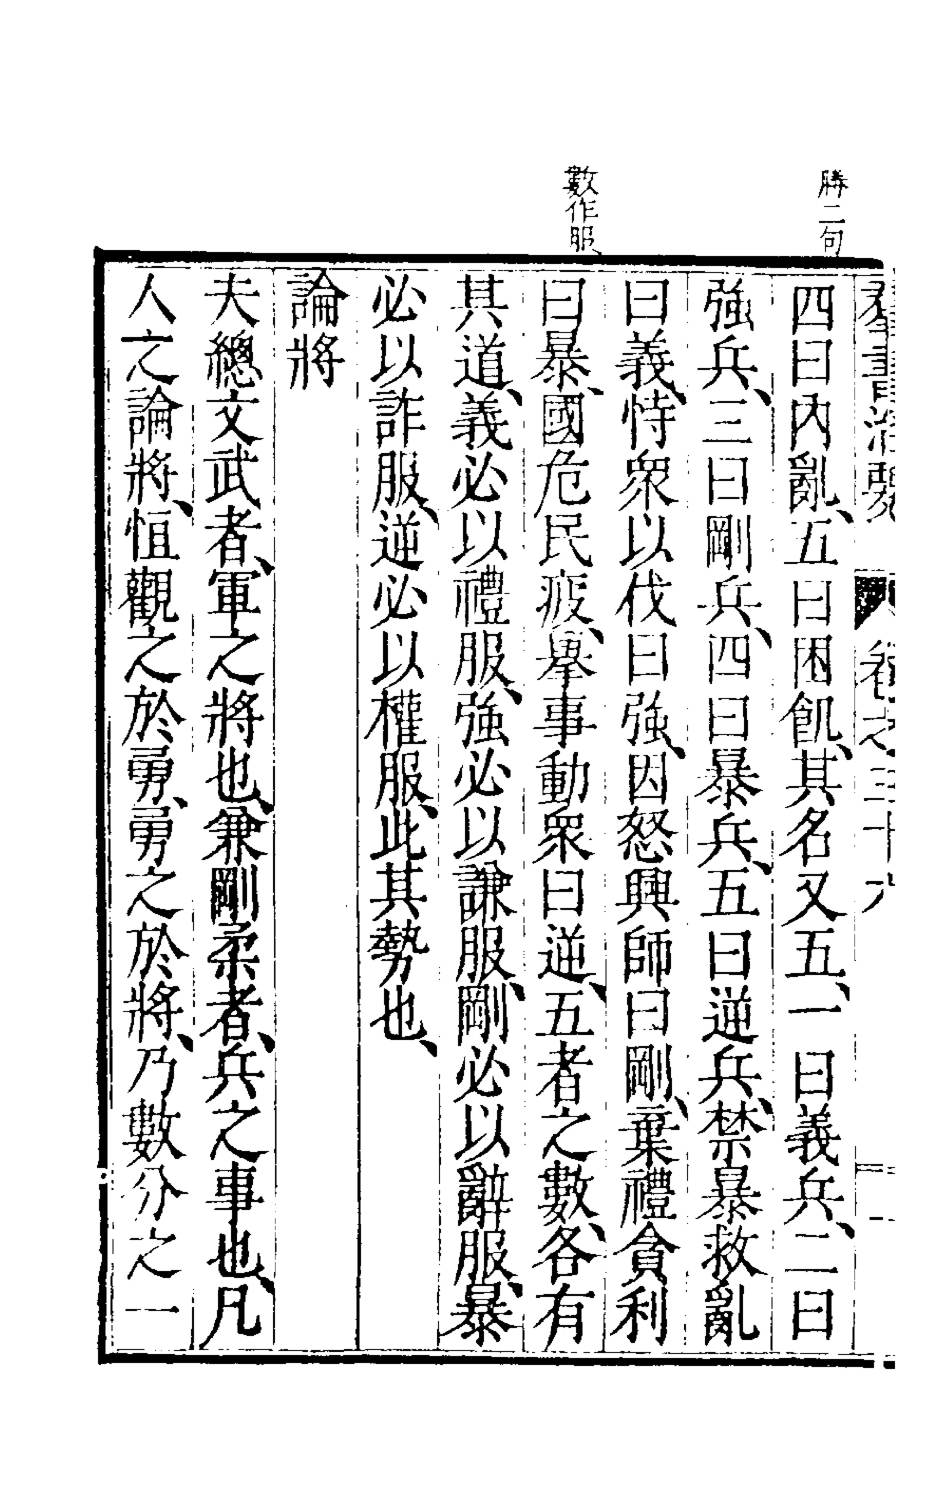 勝二句
數作服
群書治要 卷之三十六
四曰內亂、五曰困飢、其名又五、一曰義兵、二曰
強兵、三曰剛兵、四曰暴兵、五曰逆兵、禁暴救亂
曰義、恃衆以伐曰強、因怒興師曰剛、棄禮貪利
曰暴、國危民疲、舉事動衆曰逆、五者之數、各有
其道、義必以禮服、強必以謙服、剛必以辭服、暴
必以詐服、逆必以權服、此其勢也、
論將
夫總文武者、軍之將也、兼剛柔者、兵之事也、凡
人之論將、恒觀之於勇、勇之於將、乃數分之一